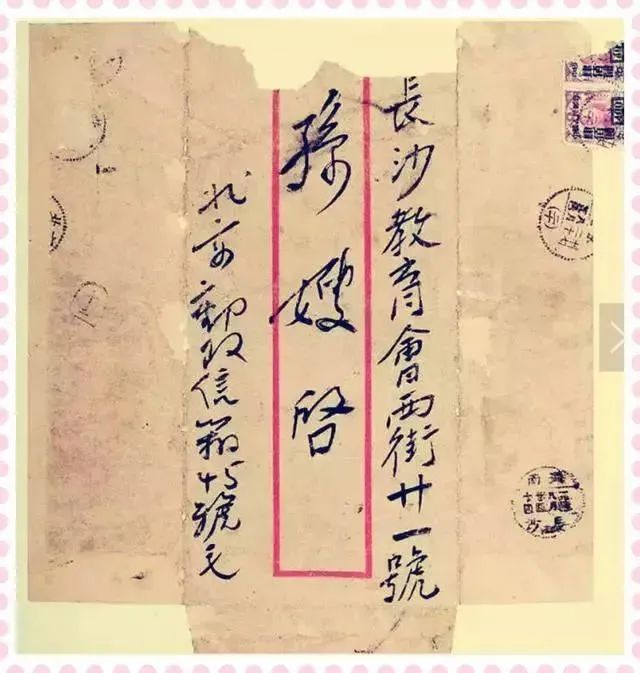 長沙教育會西街廿一號
孫嫂啓
北京郵政信箱45號毛